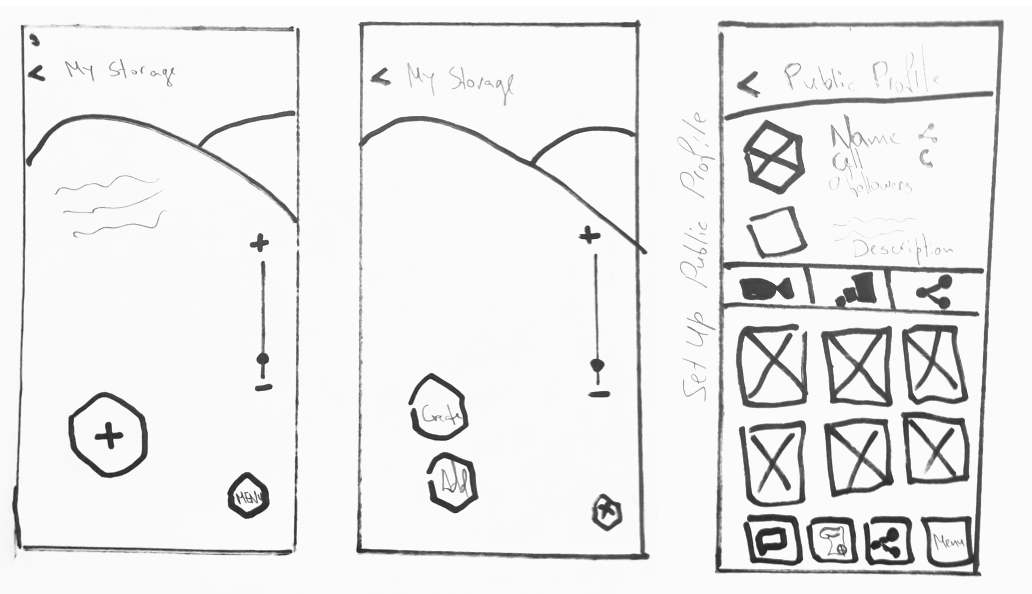 < My Storage
+
-
+
MENU
< My Storage
+
-
Create
Add
x
Set Up Public Profile
< Public Profile
Name
Call
0 followers
Description
Menu